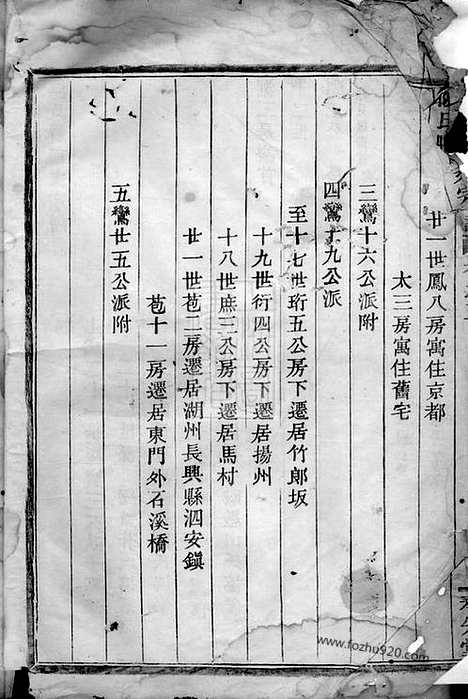 廿一世鳳八房寓住京都
太三房寓住舊宅
三鸞十六公派附
四鸞十九公派
至十七世珩五公房下遷居竹郞坂
十九世衍四公房下遷居揚州
十八世庶三公房下遷居馬村
廿一世苞二房遷居湖州長興縣泗安鎭
苞十一房遷居東門外石溪橋
五鸞廿五公派附
www.fozhu920.com